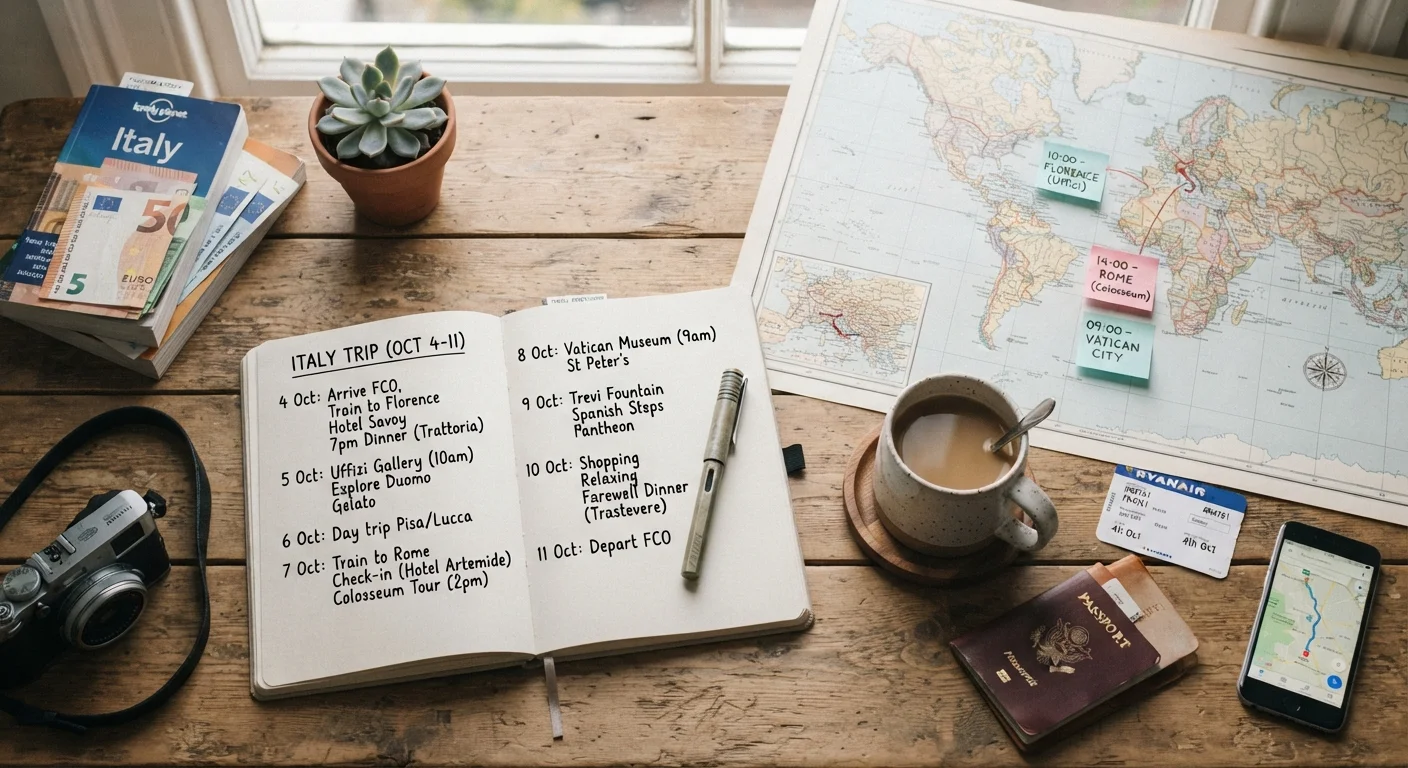 lonely planet
Italy
50
5
EURO
ITALY TRIP (OCT 4-11)
4 Oct: Arrive FCO,
Train to Florence
Hotel Savoy
7pm Dinner (Trattoria)
5 Oct: Uffizi Gallery (10am)
Explore Duomo
Gelato
6 Oct: Day trip Pisa/Lucca
7 Oct: Train to Rome
Check-in (Hotel Artemide)
Colosseum Tour (2pm)
8 Oct: Vatican Museum (9am)
St Peter's
9 Oct: Trevi Fountain
Spanish Steps
Pantheon
10 Oct: Shopping
Relaxing
Farewell Dinner
(Trastevere)
11 Oct: Depart FCO
10:00 -
FLORENCE
14:00 -
ROME
(Colosseum)
09:00 -
VATICAN
CITY
RYANAIR
PASSPORT